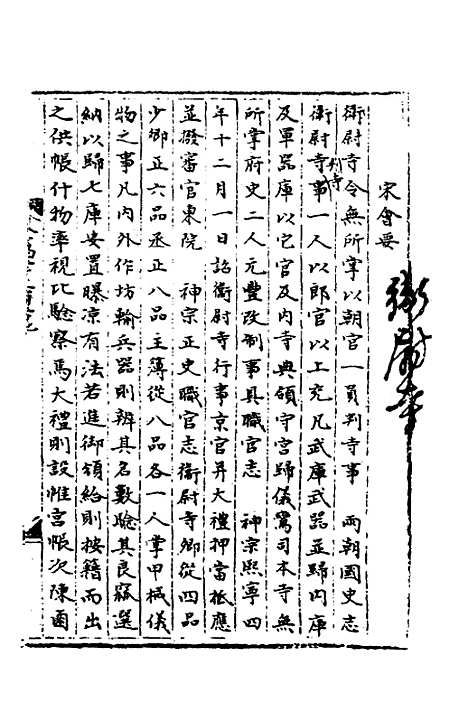 宋會要
衛尉寺
衛尉寺令無所掌以朝官一員判寺事　兩朝國史志
衛尉寺判寺事一人以郎官以上充凡武庫武器並歸內庫
及軍器庫以它官及內寺典領守宮歸儀鸞司本寺無
所掌府史二人元豐改制事具職官志　神宗熙寧四
年十二月一日詔衛尉寺行事京官并大禮押當祗應
並撥審官東院　神宗正史職官志衛尉寺卿從四品
少卿正六品丞正八品主簿從八品各一人掌甲械儀
物之事凡內外作坊輸兵器則辨其名數驗其良窳選
納以歸七庫安置曝涼有法若進御頒給則按籍而出
之供帳什物率視比驗察焉大禮則設帷宮帳次陳鹵